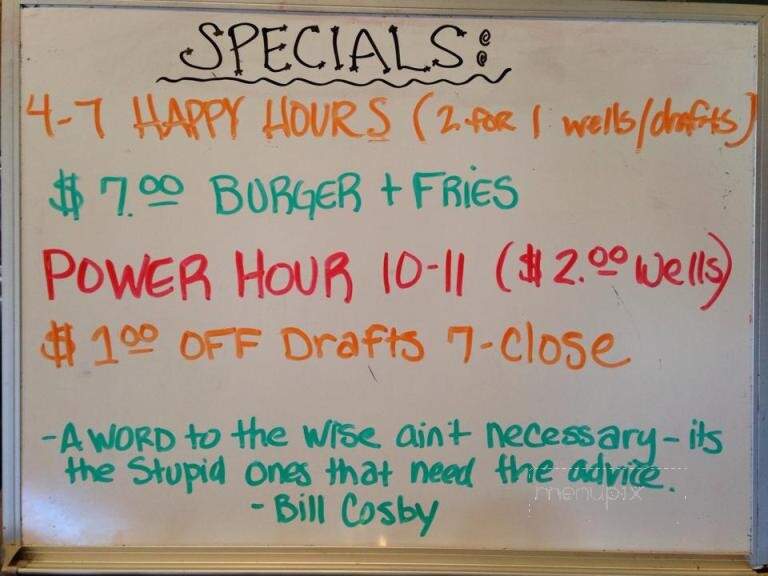 SPECIALS:
4-7 HAPPY HOURS (2 FOR 1 wells/drafts)
$7.00 BURGER + FRIES
POWER HOUR 10-11 ($2.00 wells)
$1.00 OFF Drafts 7-close
-A WORD to the wise ain't necessary - its
the Stupid ones that need the advice.
- Bill Cosby
menupix